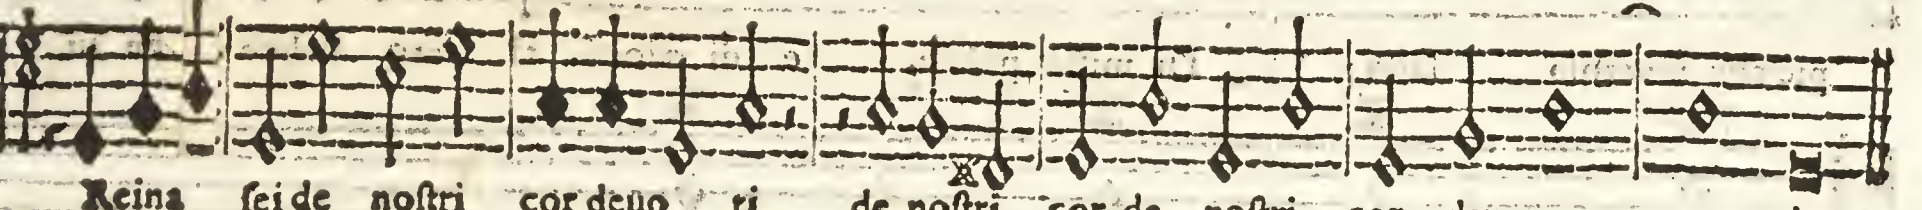 Reina ſei de noſtri cor deuo ri de noſtri cor de noſtri